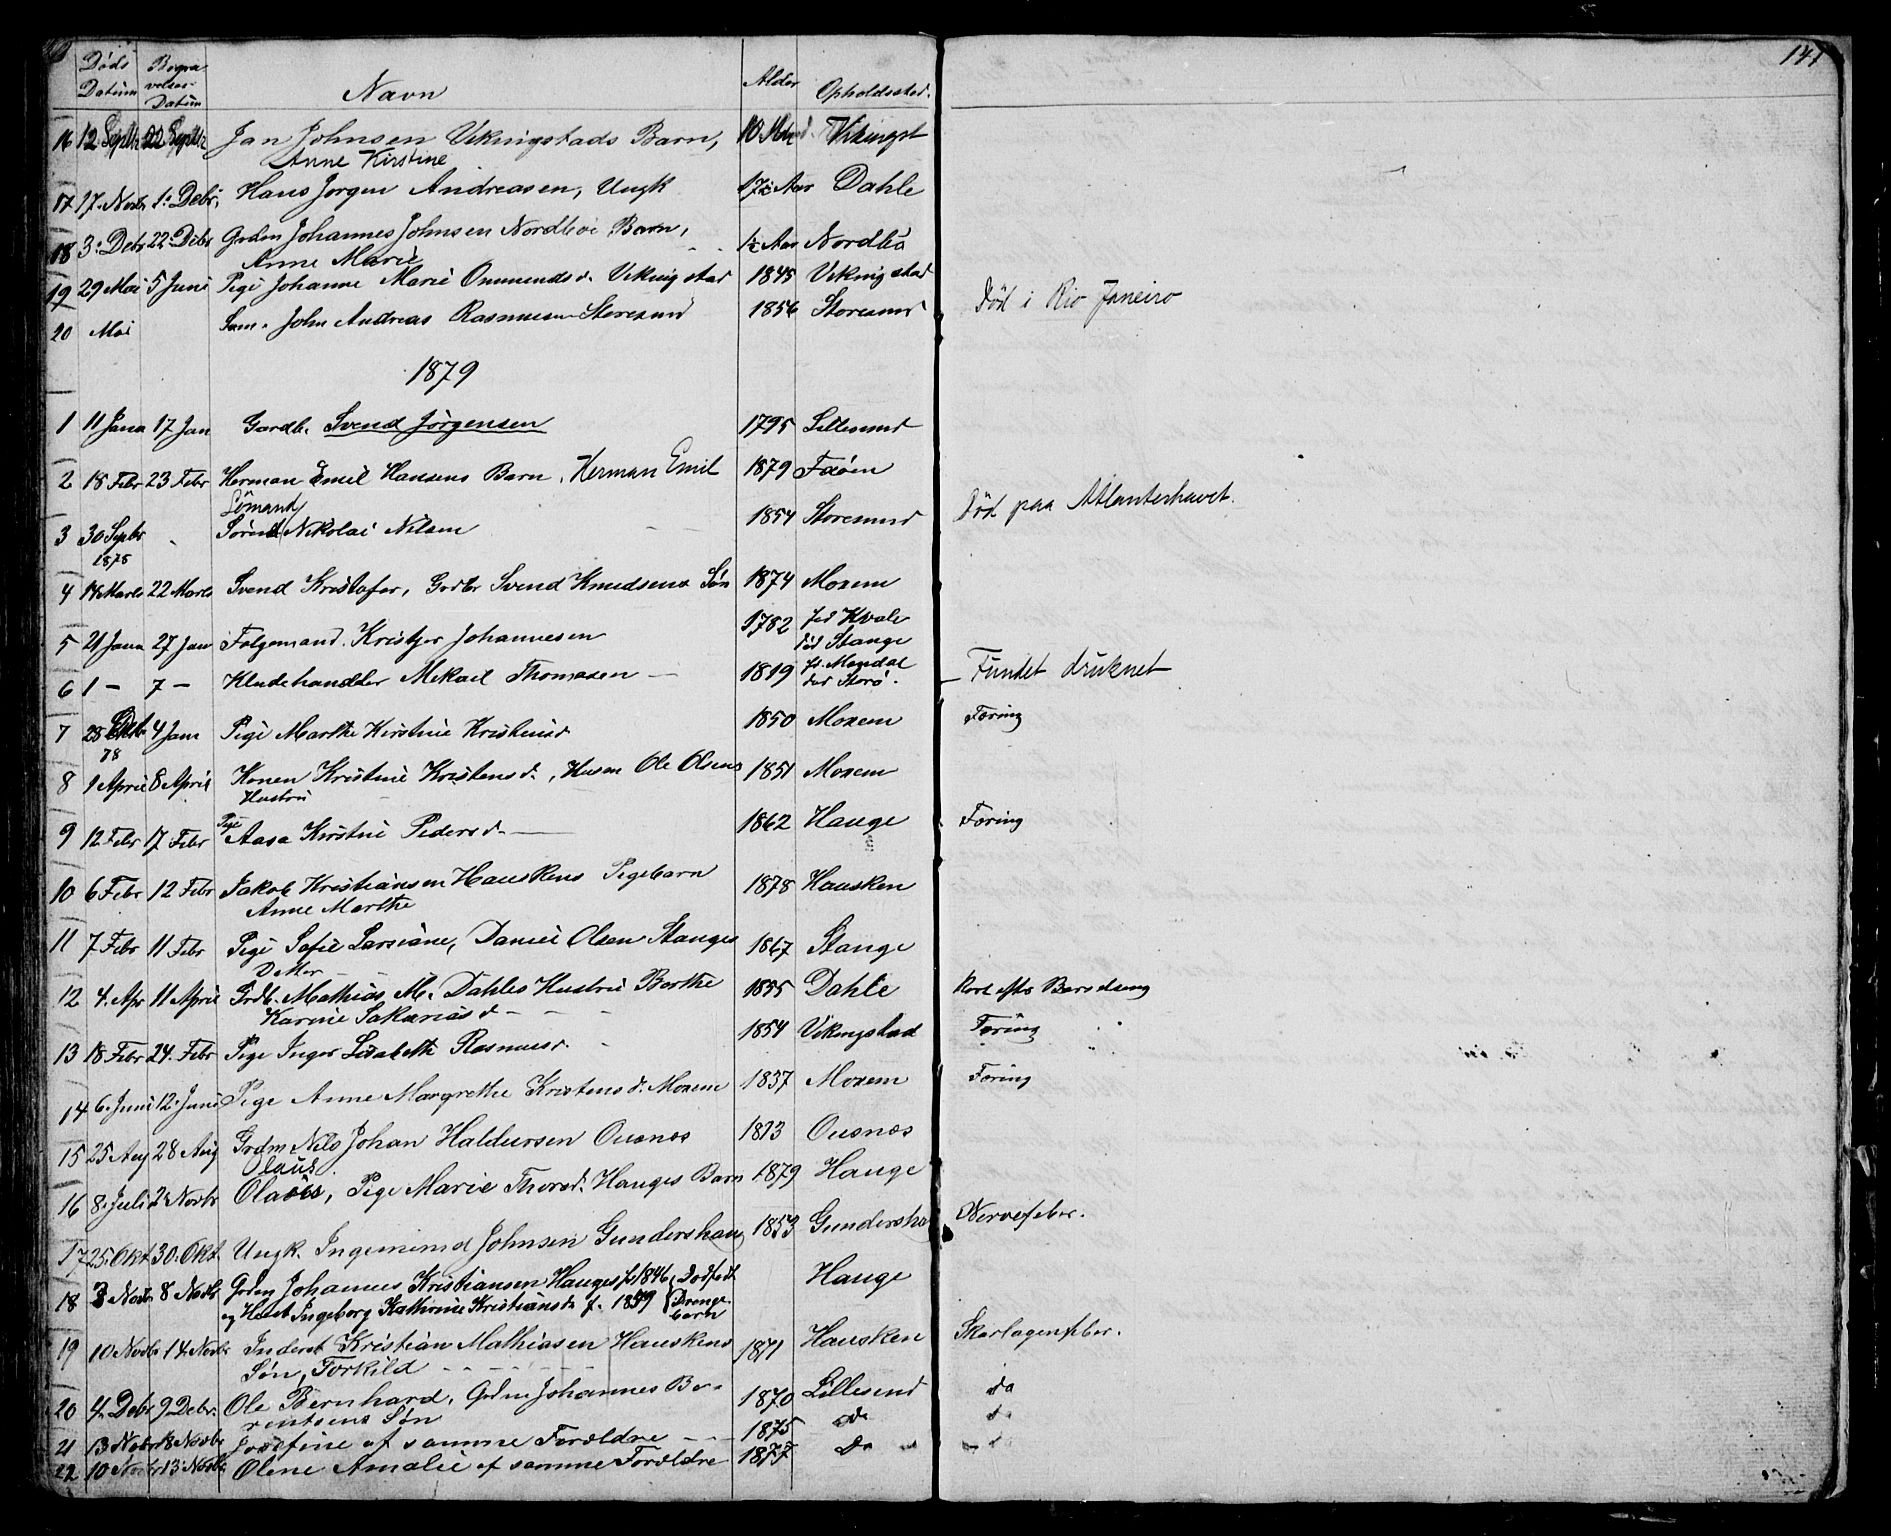 141
Døds Datum Begravelses-Datum Navn Alder Opholdsted.
16 12 Septbr 22 Septbr Jan Johnsen Vikingstads Barn, 10 Vikingst
Anne Kirstine
17 17. Novbr 1. Debr, Hans Jørgen Andreasen, Ungk 17½ Aar Dahle
18 3. Debr 22. Debr Grdm Johannes Johnsen Nordbøe Barn, ½ Aar Nordbö
Anne Marie
19 29 Mai 5 Juni Pige Johanne Marie Ommundsd. Vikingstad 1845 Vikingstad
20 Mai Søm. John Andreas Rasmusen Storesund 1856 Storesund Død i Rio Janeiro
1879
1 11 Janu 17 Jan Gardb. Svend Jörgensen 1795 Lillesund
2 18 Febr 23 Febr Herman Emil Hansens Barn, Herman Emil 1879 Fæöen
Sömand
3 30 Septbr Nikolai Nilsen 1854 Storesund Död paa Atlanterhavet.
1878
4 14 Marts 22 Marts Svend Kristofer, Grdbr Svend Knudsens Søn 1874 Moxem
5 21 Janu 27 Jan Folgemand. Johannesen 1782 fød Kvale
død Stange
6 1 - 7 - Kludehandler Mekael Thomasen 1819 fd. Mandal
død Storö. Fundet druknet
7 28 4 Janu Pige Marthe Kirstine Kristensd 1850 Moxem Tæring
78
8 1 April 8 April Konen Kristine Kristensd., Husm Ole Olsens 1851 Moxem
Hustru
9 12 Febr 17 Febr Pige Aasa Kirstine Pedersd. 1862 Hauge Tæring
10 6 Febr 12 Febr Jakob Kristiansen Hauskens Pigebarn 1878 Hausken
Anne Marthe
11 7 Febr 11 Febr Pige Sofie Larsiane, Daniel Olsen Stanges 1867 Stange
Datter
12 4. Apr 11 April Grdb. Mathias M. Dahles Hustru Berthe 1855 Dahle Kort efter Barselseng
Karine Sakariasd
13 18 Febr 24. Febr Pige Inger Lisabeth Rasmusd. 1854 Vikingstad Tæring
14 6. Juni 12. Juni Pige Anne Margrethe Kristensd. Moxem 1837 Moxem Tæring
15 25 Aug 28 Aug Grdm Nils Johan Haldorsen Ousnæs 1813 Ousnæs
Olaus
16 8. Juli 2. Novbr Pige Marie Thorsd. Hauges Barn 1879 Hauge
17 25. Okt. 30. Okt. Ungk. Johnsen Gundershaug 1853 Gundersha Nervefeber.
18 3 Novbr 8 Novbr Grdm Johannes Kristiansen Hauges f. 1846 Dødfødt Hauge
og Hust. Ingeborg Kathrine Kristiansd. f. 1859 Drenge-
barn
19 10 Novbr 14 Novbr Inderst Kristian Mathiasen Hauskens 1871 Hausken Skarlagensfeber.
Søn, Torkild
20 4. Debr 9 Debr. Ole Bernhard, Grdm Johannes Be- 1870 Lillesund do
rentsens Søn
21 13 Novbr 18 Novbr Josefine af samme Forældre 1875 do do
22 10 Novbr 13. Novbr Olene Amalie af samme Forældre 1877 Do do